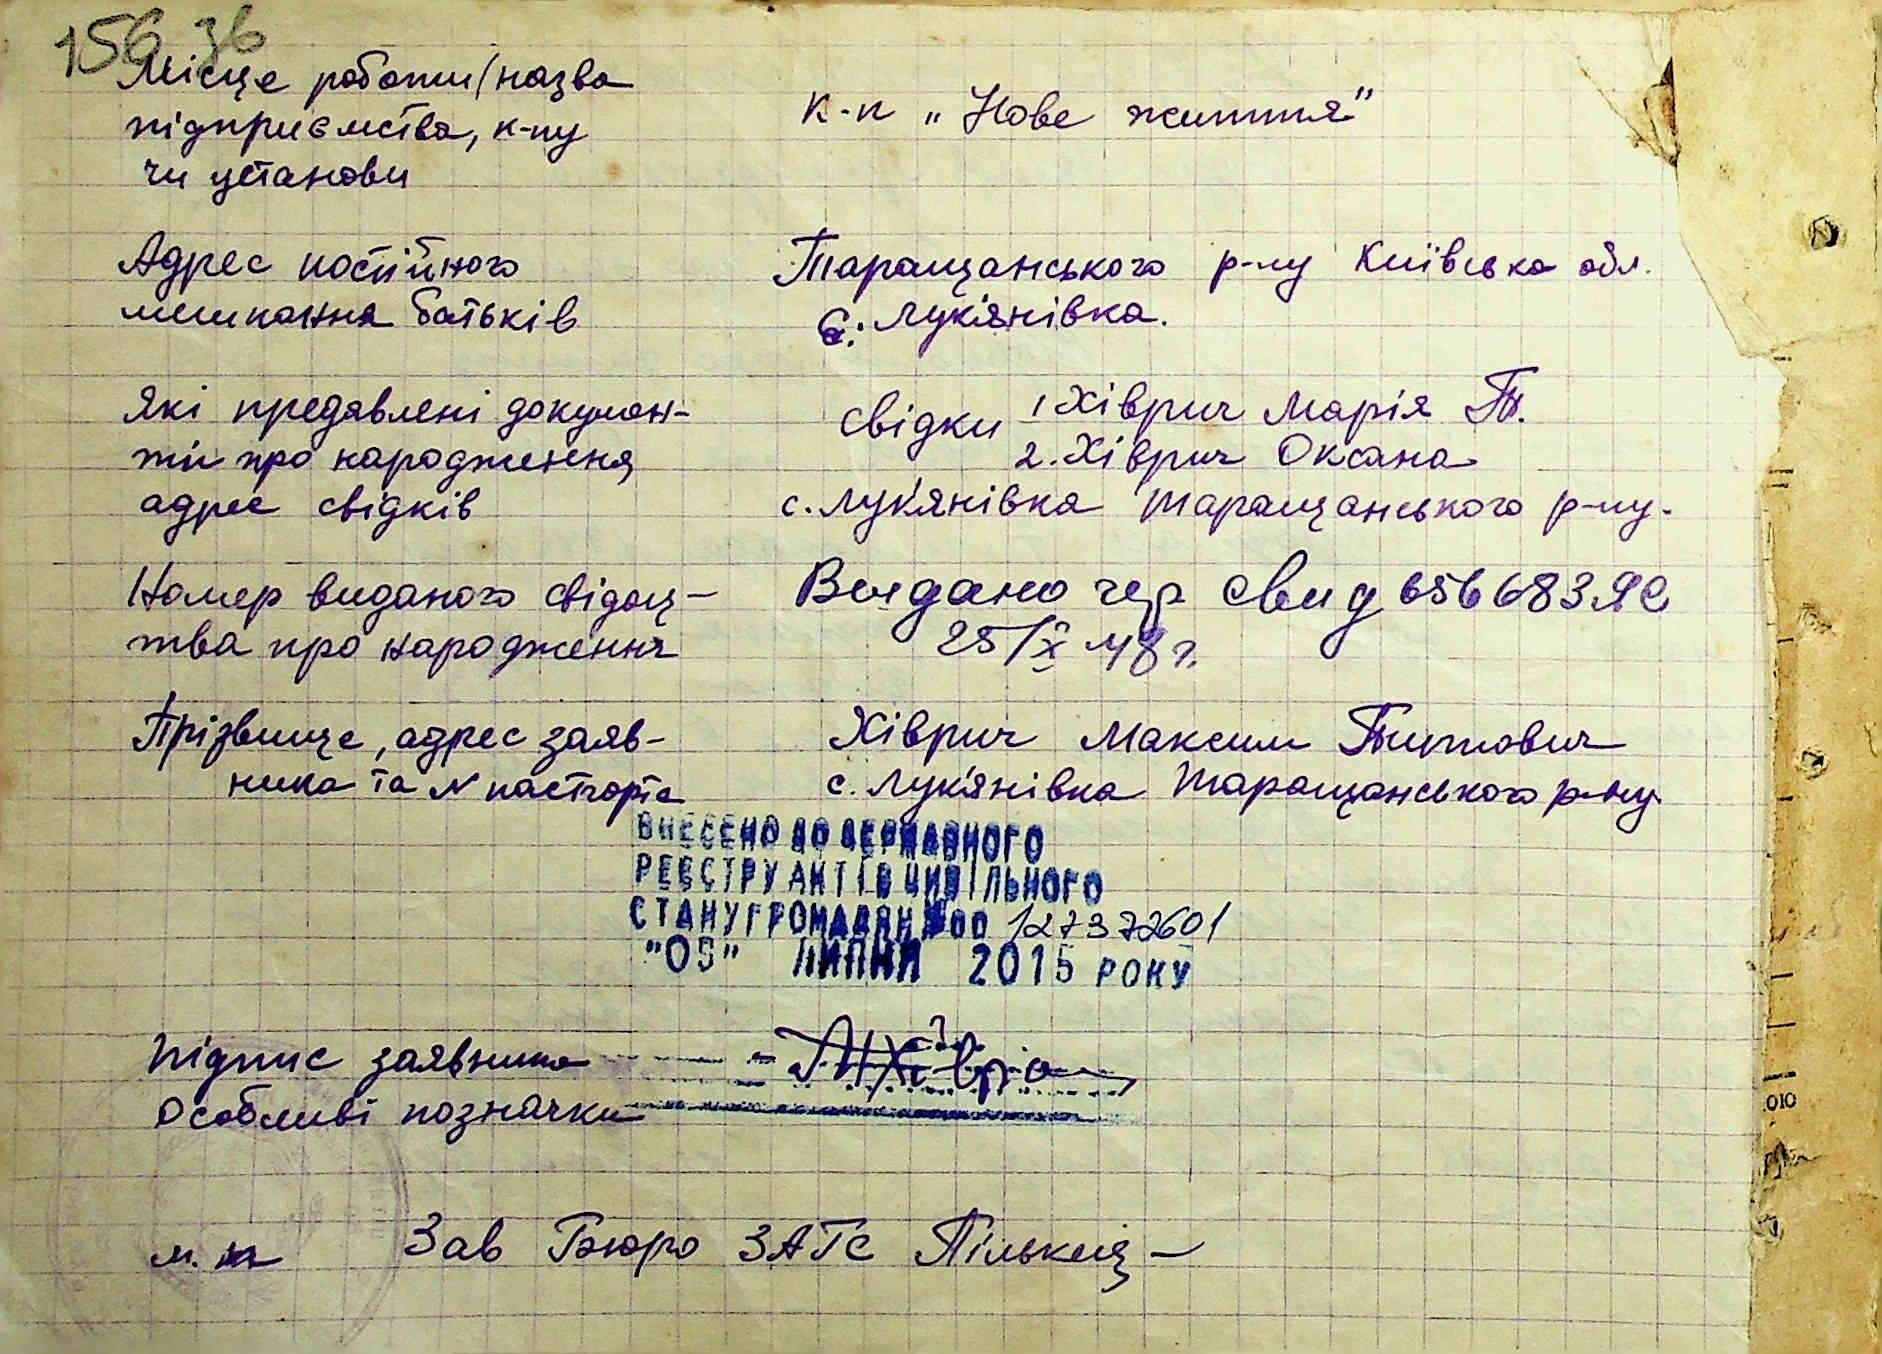 156 зв
Місце роботи (назва
підприємства, к-пу
чи установи
к-п „Нове життя"
Адрес постійного
мешкання батьків
Таращанського р-ну Київська обл.
с. Лук'янівка.
Які предявлені докумен-
ти про народження,
адрес свідків
Свідки 1 Хіврич Марія Т.
2. Хіврич Оксана
с. Лук'янівка Таращанського р-ну.
Номер виданого свідоц-
тва про народження
Выдано чер свид 656683 ЯС
25/X 48 г.
Прізвище, адрес заяв-
ника та N паспорта
Хіврич Максим Титович
с. Лук'янівка Таращанського р-ну
ВНЕСЕНО ДО ДЕРЖАВНОГО
РЕЄСТРУ АКТІВ ЦИВІЛЬНОГО
СТАНУ ГРОМАДЯН №00 127372601
"05" ЛИПНЯ 2015 РОКУ
Підпис заявника
Особливі позначки
м. п Зав Бюро ЗАГС